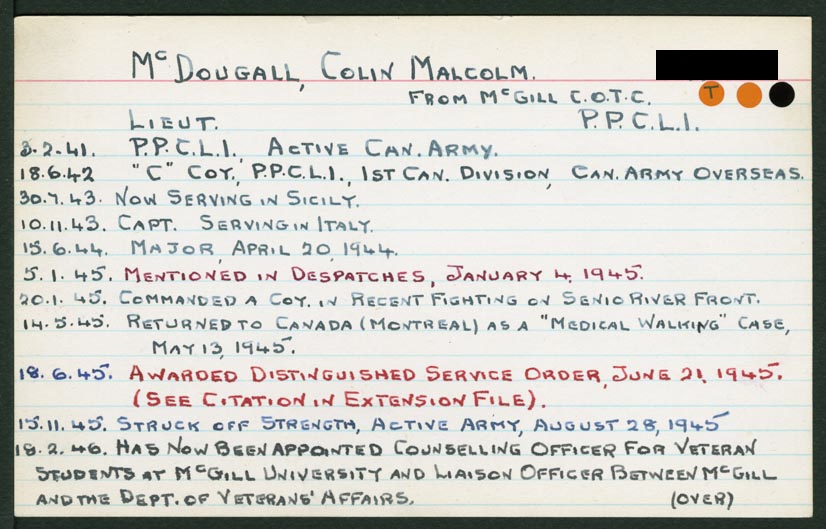 McDOUGALL, COLIN MALCOLM.
FROM McGILL C.O.T.C. T
LIEUT. P.P.C.L.I.
3.2.41. P.P.C.L.I., ACTIVE CAN. ARMY.
18.6.42 "C" COY., P.P.C.L.I., 1ST CAN. DIVISION, CAN. ARMY OVERSEAS.
30.7.43. NOW SERVING IN SICILY.
10.11.43. CAPT. SERVING IN ITALY.
15.6.44. MAJOR, APRIL 20, 1944.
5.1.45. MENTIONED IN DESPATCHES, JANUARY 4, 1945.
20.1.45. COMMANDED A COY. IN RECENT FIGHTING ON SENIO RIVER FRONT.
14.5.45. RETURNED TO CANADA (MONTREAL) AS A "MEDICAL WALKING" CASE,
MAY 13, 1945.
18.6.45. AWARDED DISTINGUISHED SERVICE ORDER, JUNE 21, 1945.
(SEE CITATION IN EXTENSION FILE).
15.11.45. STRUCK OFF STRENGTH, ACTIVE ARMY, AUGUST 28, 1945
18.2.46. HAS NOW BEEN APPOINTED COUNSELLING OFFICER FOR VETERAN
STUDENTS AT McGILL UNIVERSITY AND LIAISON OFFICER BETWEEN McGILL
AND THE DEPT. OF VETERANS' AFFAIRS. (OVER)